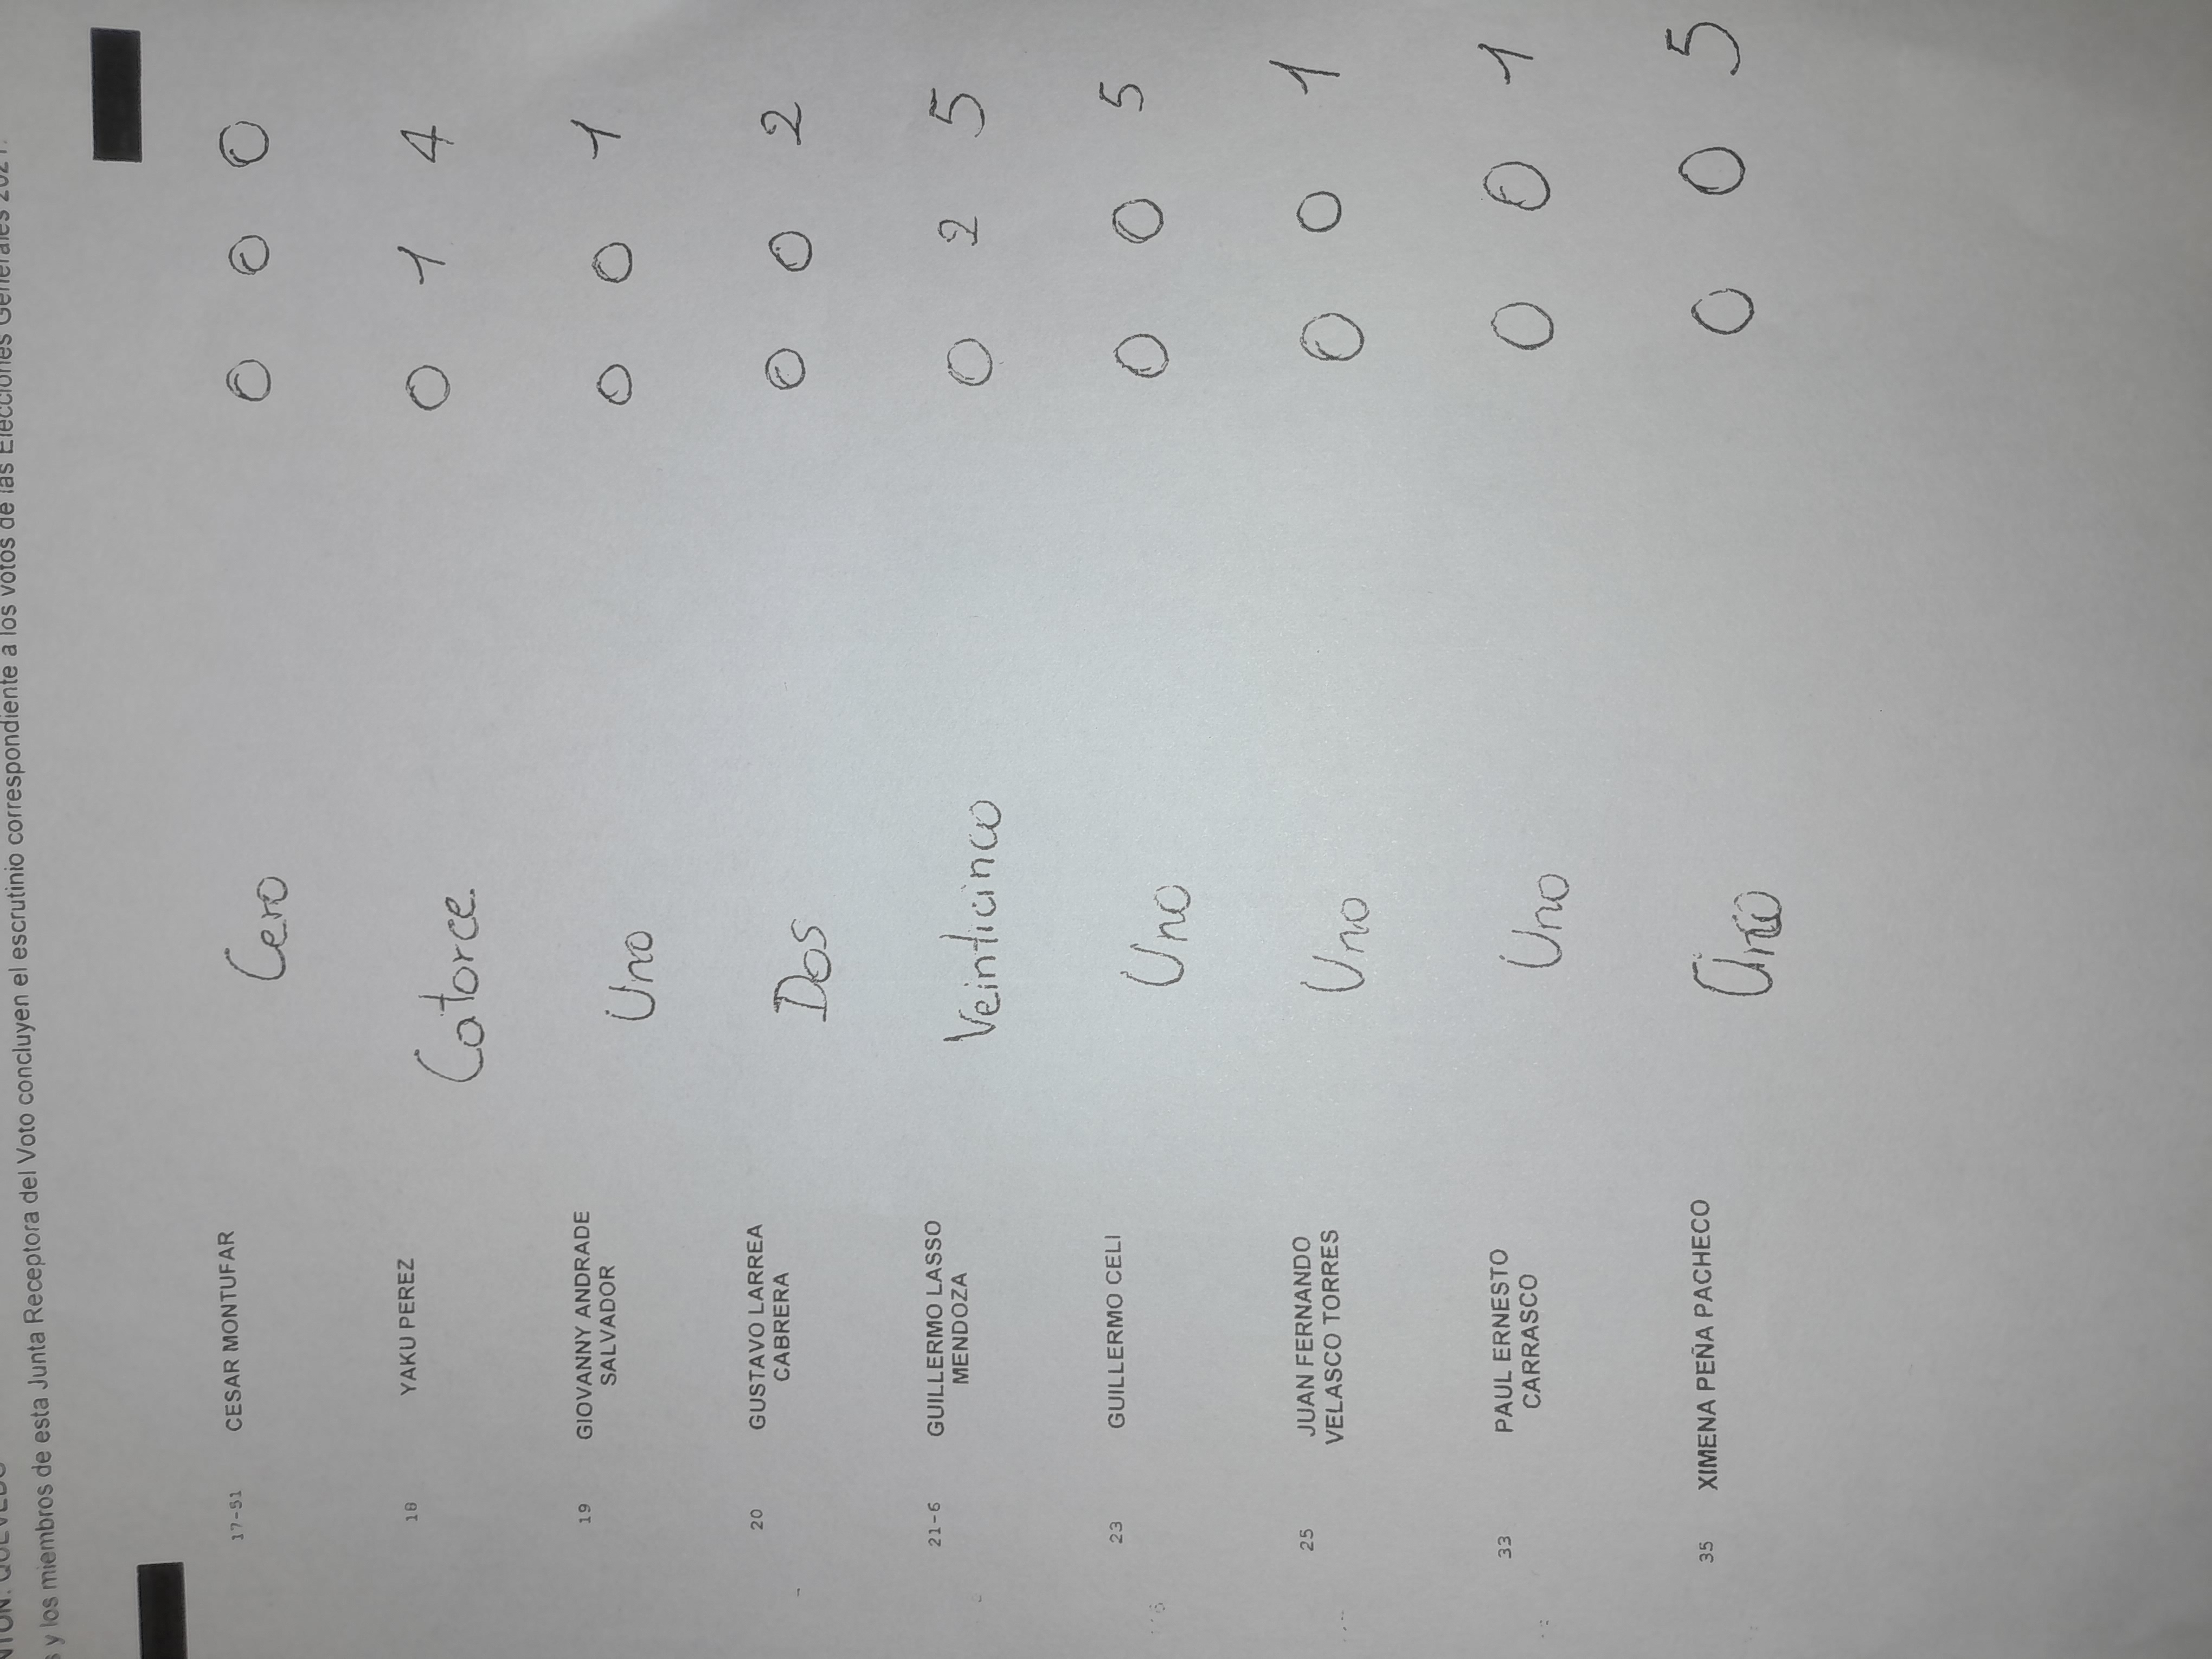 NTÓN: QUEVEDO
s y los miembros de esta Junta Receptora del Voto concluyen el escrutinio correspondiente a los votos de las Elecciones Generales 2021.
17-51 CESAR MONTUFAR Cero 0 0 0
18 YAKU PEREZ Catorce. 0 1 4
19 GIOVANNY ANDRADE
SALVADOR Uno 0 0 1
20 GUSTAVO LARREA
CABRERA Dos 0 0 2
21-6 GUILLERMO LASSO
MENDOZA Veinticinco 0 2 5
23 GUILLERMO CELI Uno 0 0 5
25 JUAN FERNANDO
VELASCO TORRES Uno 0 0 1
33 PAUL ERNESTO
CARRASCO Uno 0 0 1
35 XIMENA PEÑA PACHECO 0 0 5